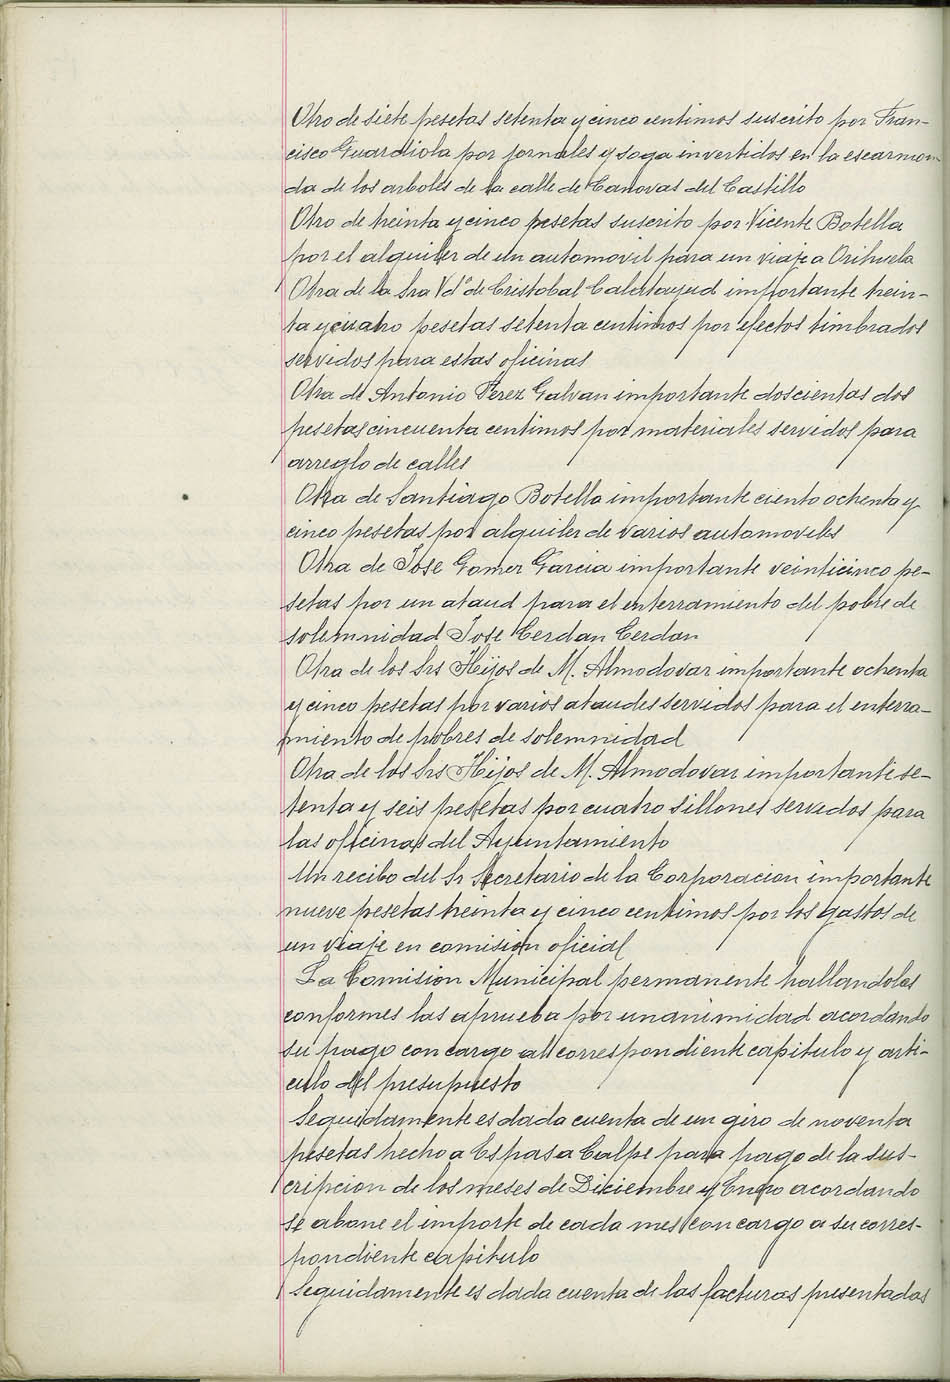 Otro de siete pesetas setenta y cinco centimos suscrito por Fran-
cisco Guardiola por jornales y soga invertidos en la escarmon-
da de los arboles de la calle de Canovas del Castillo
Otro de treinta y cinco pesetas suscrito por Vicente Botella
por el alquiler de un automovil para un viaje a Orihuela
Otra de la Sra Vdª de Cristobal Calatayud importante trein-
ta y cuatro pesetas setenta centimos por efectos timbrados
servidos para estas oficinas
Otra de Antonio Perez Galvan importante doscientas dos
pesetas cincuenta centimos por materiales servidos para
arreglo de calles
Otra de Santiago Botella importante ciento ochenta y
cinco pesetas por alquiler de varios automoviles
Otra de Jose Gomer Garcia importante veinticinco pe-
setas por un ataud para el enterramiento del pobre de
solemnidad Jose Cerdan Cerdan
Otra de los Srs Hijos de M. Almodovar importante ochenta
y cinco pesetas por varios ataudes servidos para el enterra-
miento de pobres de solemnidad
Otra de los Srs Hijos de M. Almodovar importante se-
tenta y seis pesetas por cuatro sillones servidos para
las oficinas del Ayuntamiento
Un recibo del Sr Secretario de la Corporacion importante
nueve pesetas treinta y cinco centimos por los gastos de
un viaje en comision oficial
La Comision Municipal permanente hallandolas
conformes las aprueba por unanimidad acordando
su pago con cargo al correspondiente capitulo y arti-
culo del presupuesto
Seguidamente es dada cuenta de un giro de noventa
pesetas hecho a Espasa Calpe para pago de la sus-
cripcion de los meses de Diciembre y Enero acordando
se abone el importe de cada mes con cargo a su corres-
pondiente capitulo
Seguidamente es dada cuenta de las facturas presentadas